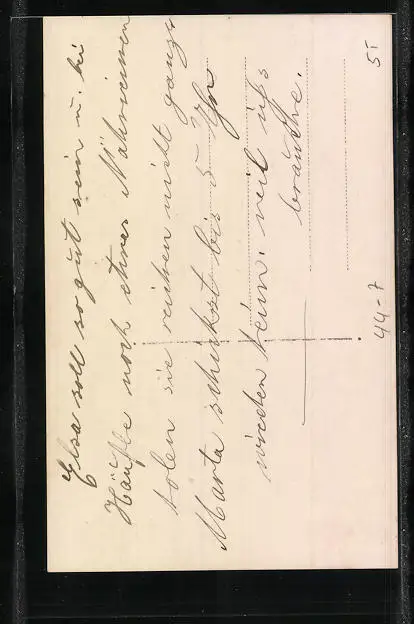 Elsa soll so gut sein u. bei
Häufle noch etwas Nähriemen
holen sie reichen nicht ganz.
Marta schickst bis 5 Uhr
wieder heim. weil ichs
brauche.
44-7
51